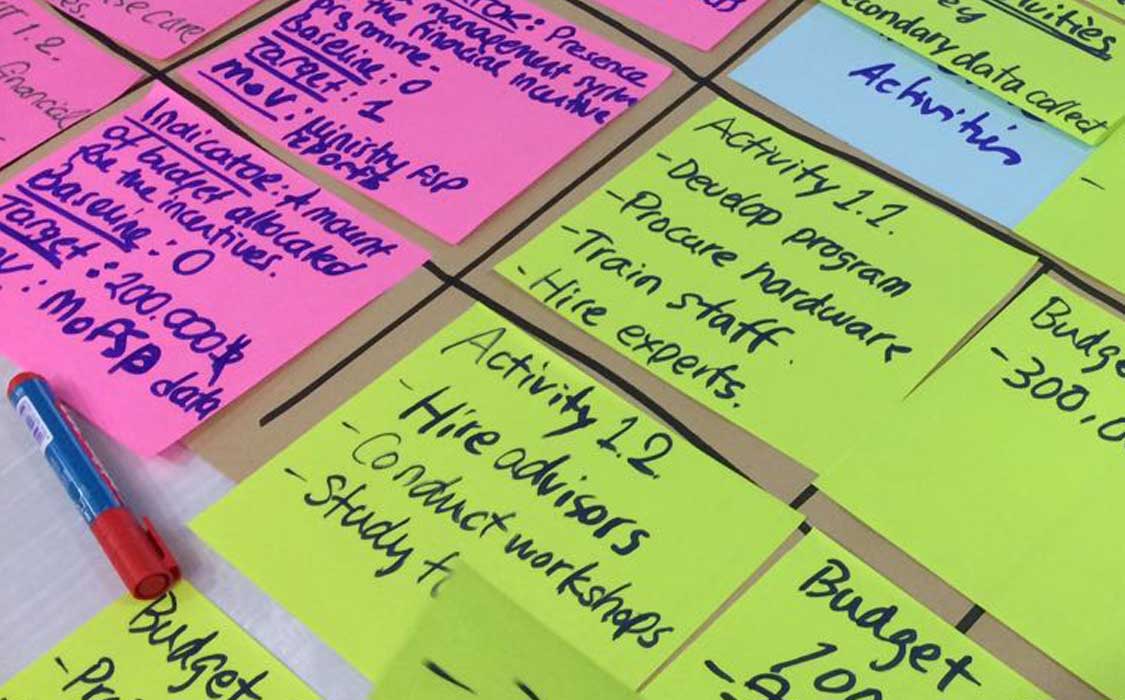 1.2.
financial
se care
Presence
management system
the financial incentive
Baseline: 0
Target: 1
MoV:
Ministry FSP
Indicator: Amount
of budget allocated
for the incentives.
Baseline: 0
Target: 200.000$
MoFSP data
ey
condary data collect
Activities
Activity 1.1.
- Develop program
- Procure hardware
- Train staff.
- Hire experts.
Activity 1.2.
- Hire advisors
- Conduct workshops
- Study
Budge
- 300,0
Budget
100
Budget
- Pr